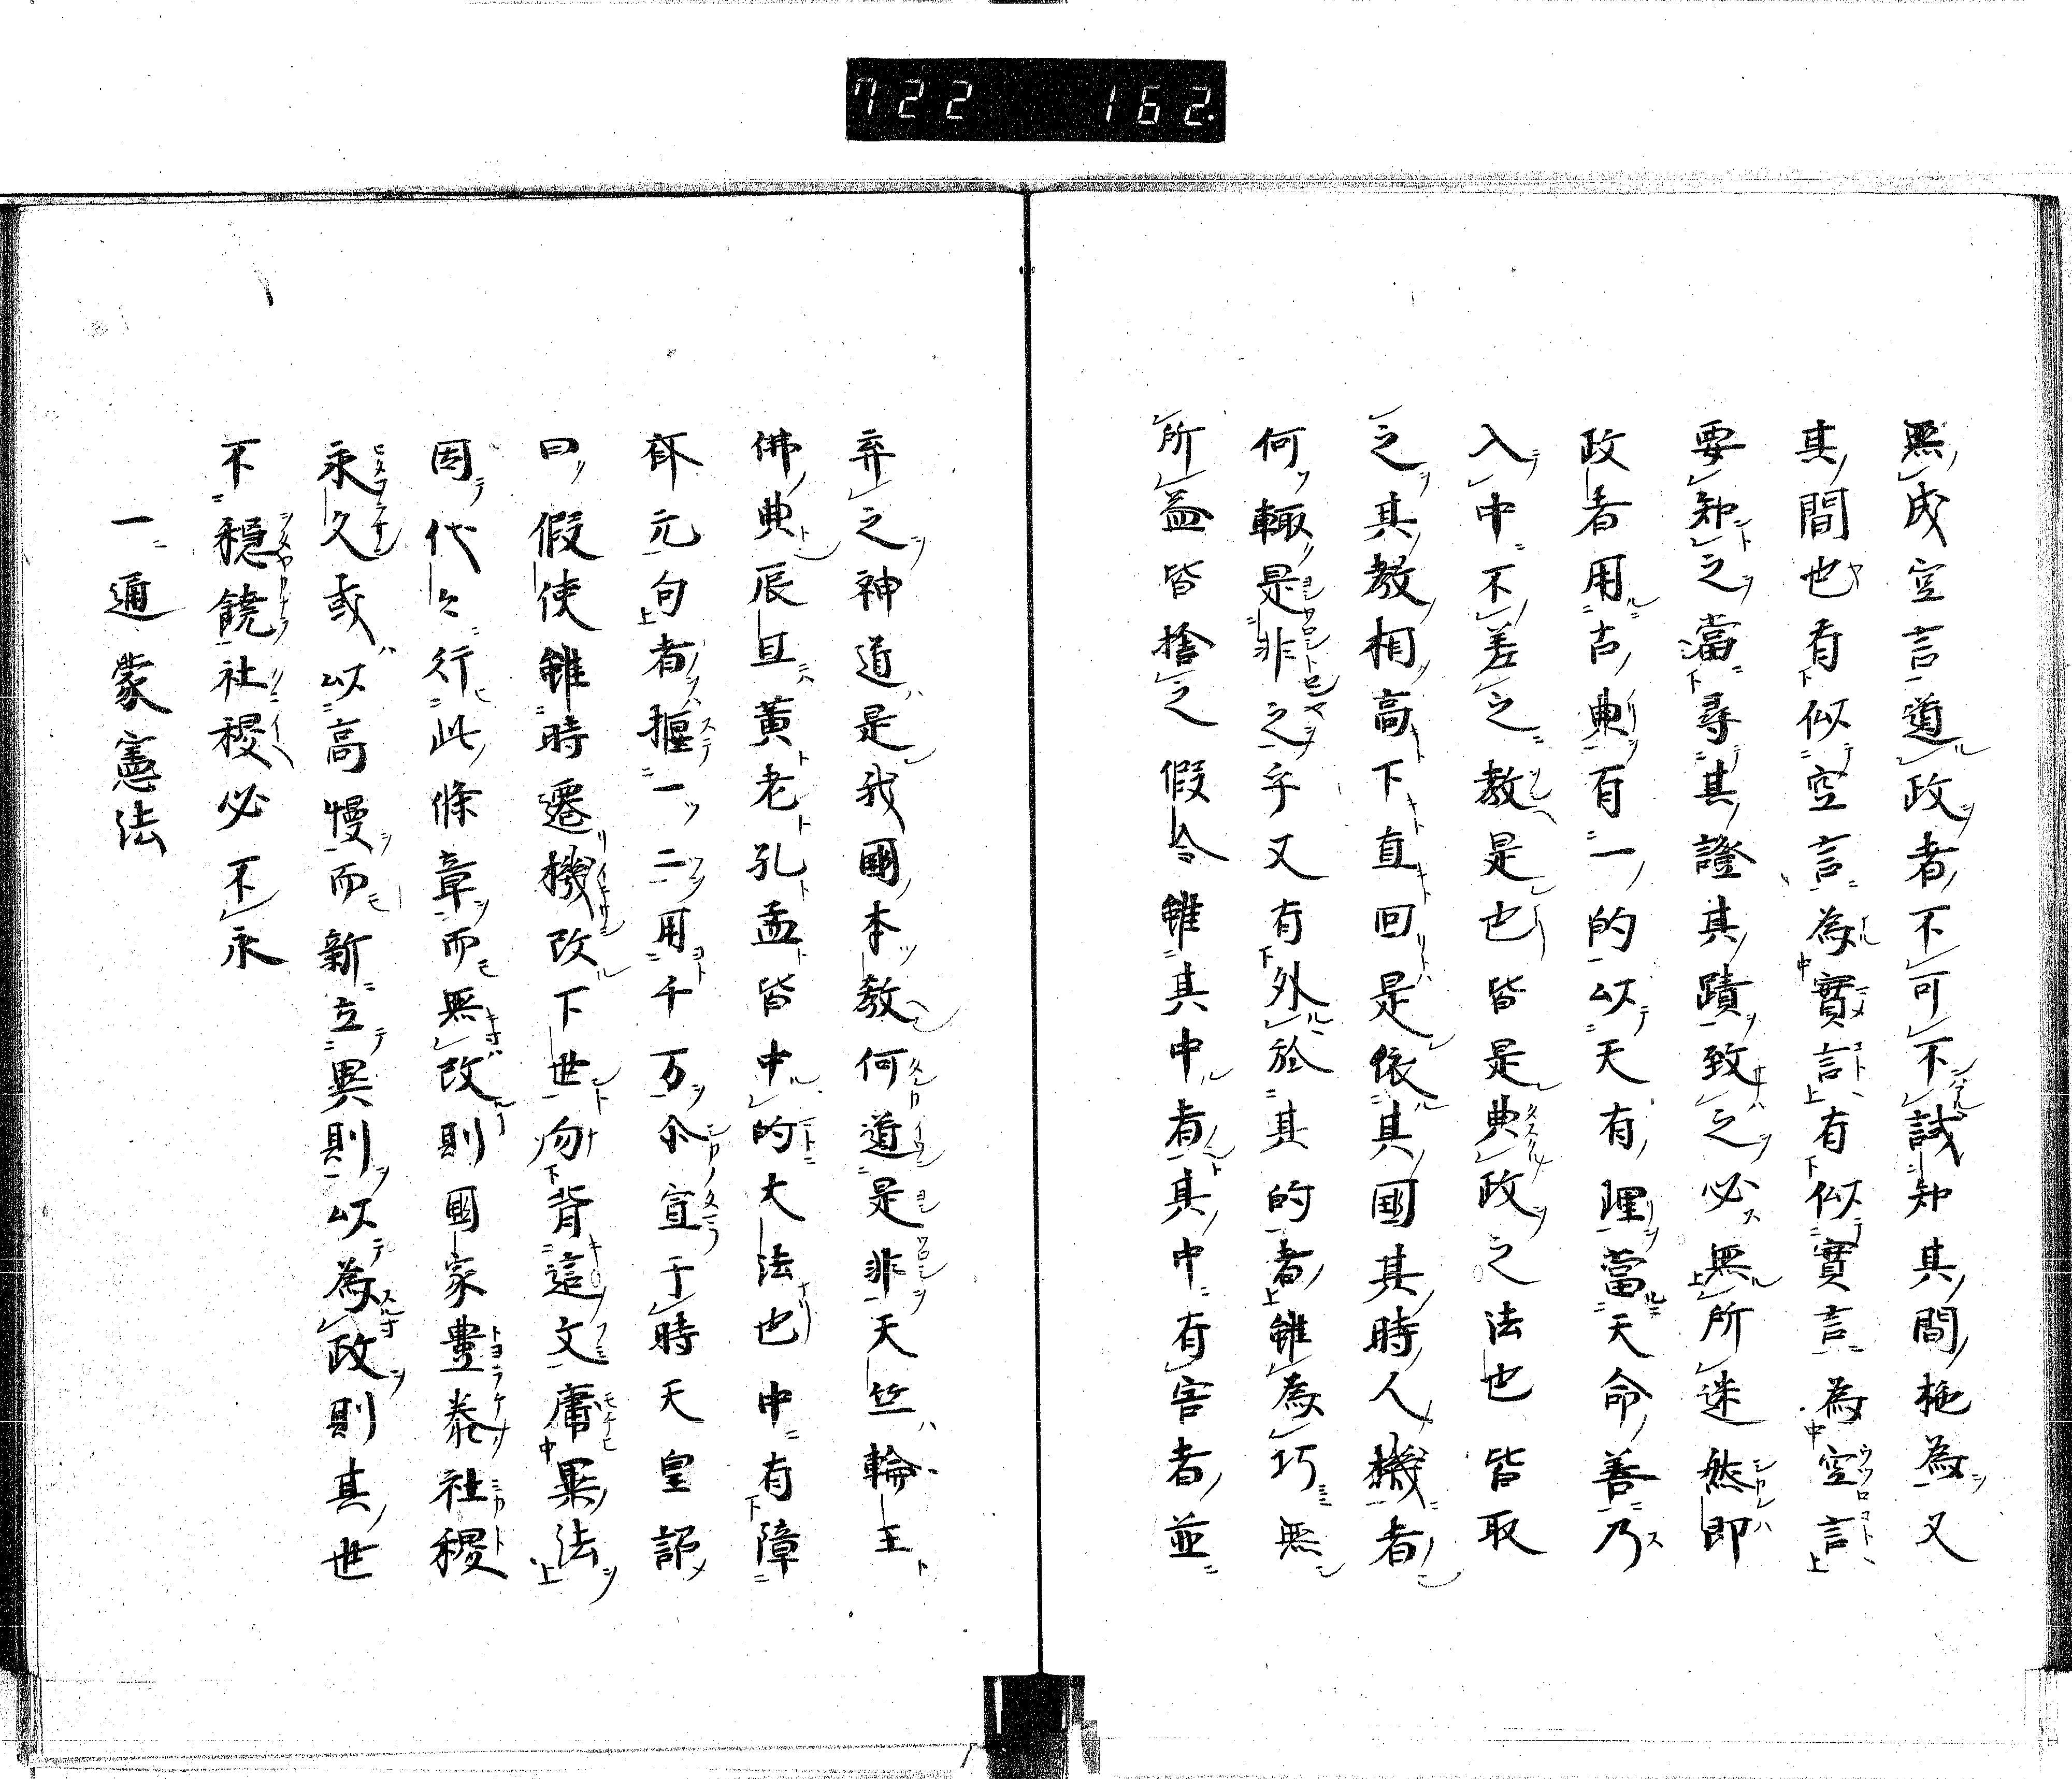 722 162.
無成空言道政者不可不試知其間施為又
其間也有似空言為實言有似實言為空言
要知之當尋其證其蹟致之必無所迷然即
政者用古典有一的以天有理當天命善乃
入中不差之教是也皆是典政之法也皆取
之其教相高下直回是依其國其時人機者
何輙是非之乎又有外於其的者雖為巧無
所益皆捨之假令雖其中者其中有害者並
弃之神道是我國本教何道是非天竺輪王
佛典辰旦黃老孔孟皆中的大法也中有障
元句者擓一二用千万介宣于時天皇詔
曰假使雖時遷機改下世勿背這文庸異法
因代々行此條章而無改則國家豊泰社稷
永久或以高慢而新立異則以為政則其世
不穏饒社稷必不永
一通蒙憲法